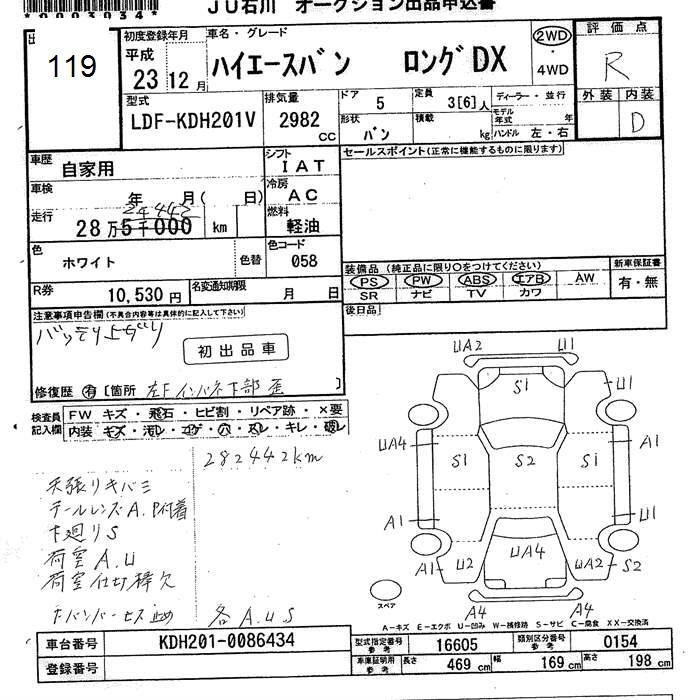 *0003034*
JU石川 オークション出品申込書
119
初度登録年月
平成
23 12月
車名・グレード
ハイエースバン ロングDX
2WD
・
4WD
評価点
R
外装 内装
D
型式
LDF-KDH201V
排気量
2982 cc
ドア 5
形状 バン
定員 3[6]人
積載 kg
ディーラー・並行
モデル年式 年
ハンドル 左・右
車歴 自家用
シフト IAT
車検 年 月( 日)
冷房 AC
走行 28万5千000 km
2442
燃料 軽油
色 ホワイト 色替
色コード 058
R券 10,530円
名変通知期限 月 日
セールスポイント(正常に機能するものに限ります)
装備品(純正品に限り○をつけてください)
PS PW ABS エアB AW
SR ナビ TV カワ
新車保証書
有・無
後日品
注意事項申告欄(不具合内容等は具体的に記入して下さい)
バッテリ上ガリ
初出品車
修復歴 有 [箇所 左Fインパネ下部歪]
検査員記入欄
FW キズ・飛石・ヒビ割・リペア跡・×要
内装 キズ・汚レ・コゲ・穴・スレ・キレ・破レ
282442km
天張リキバミ
テールレンズA.P付着
下廻りS
荷室A.U
荷室仕切棒欠
各A.U.S
UA2 U1
S1
U1
UA4 S1 S2 S1 A1
A1 U1
A1 U2 UA4 UA2 S2
A4 A4
スペア
A-キズ E-エクボ U-凹み W-補修跡 S-サビ C-腐食 XX-交換済
車台番号 KDH201-0086434
登録番号
型式指定番号 参考 16605
類別区分番号 参考 0154
車庫証明用 参考 長さ 469 cm 幅 169 cm 高さ 198 cm